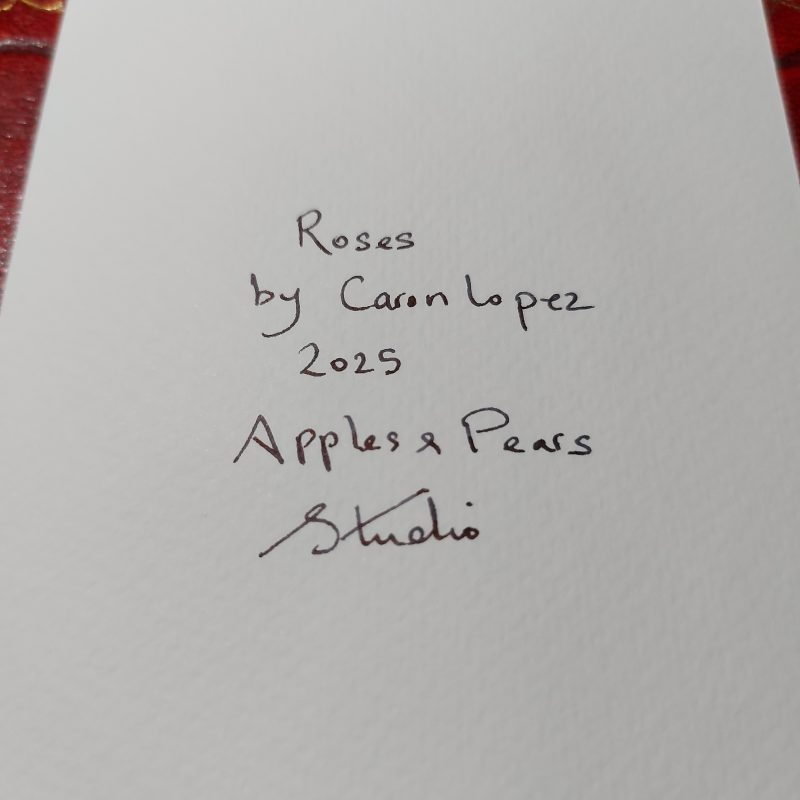 Roses
by Caron Lopez
2025
Apples & Pears
Studio